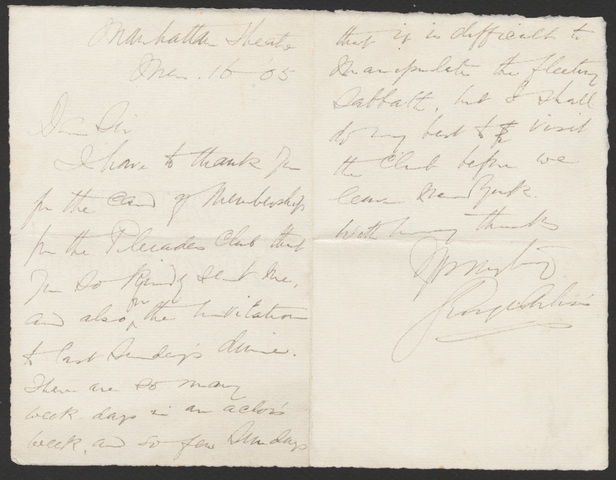 Manhattan Theatre
Mar. 16 '05
Dear Sir
I have to thank you
for the Card of Membership
for the Pleiades Club that
you so kindly sent me,
and also for the Invitation
to last Sunday's dinner.
There are so many
week days in an actor's
week, and so few Sundays
that it is difficult to
manipulate the fleeting
Sabbath, but I shall
do my best to visit
the Club before we
leave New York.
With many thanks
George Arliss